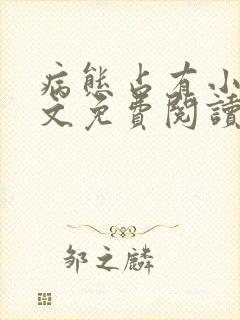 病態占有小
文免費閱讀
邹之麟